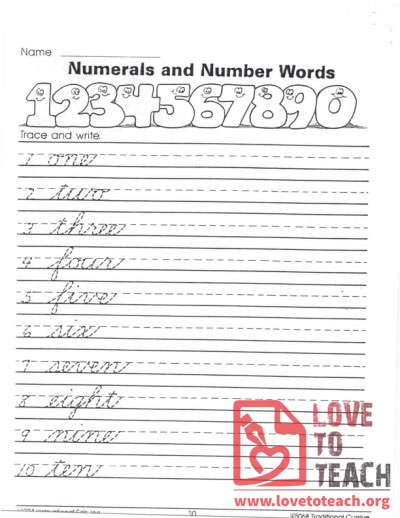 Name
Numerals and Number Words
1234567890
Trace and write.
1 one
2 two
3 three
4 four
5 five
6 six
7 seven
8 eight
9 nine
10 ten
LOVE
TO
TEACH
www.lovetoteach.org
30
Traditional Cursive